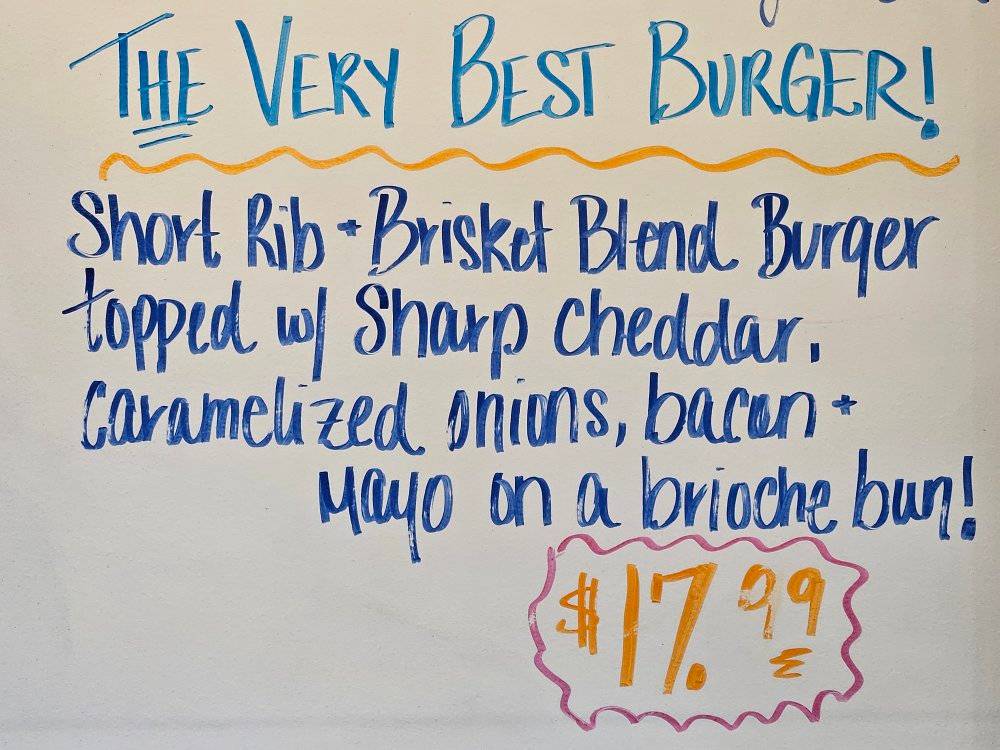 THE VERY BEST BURGER!
Short Rib + Brisket Blend Burger
topped w/ Sharp cheddar,
caramelized onions, bacon +
Mayo on a brioche bun!
$17.99